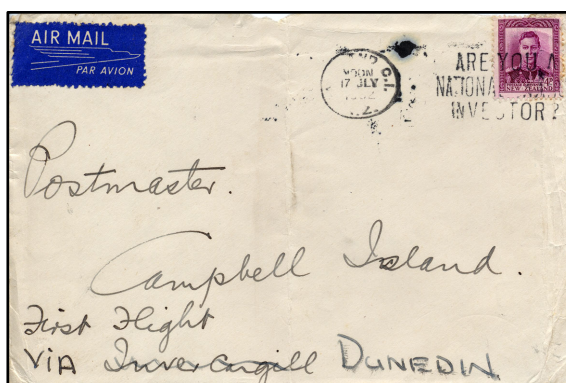 AIR MAIL
PAR AVION
ARE YOU A
NATIONAL
INVESTOR?
C.I.
NOON
17 JLY
N.Z.
4D
NEW ZEALAND
Postmaster.
Campbell Island.
First Flight
VIA Invercargill DUNEDIN